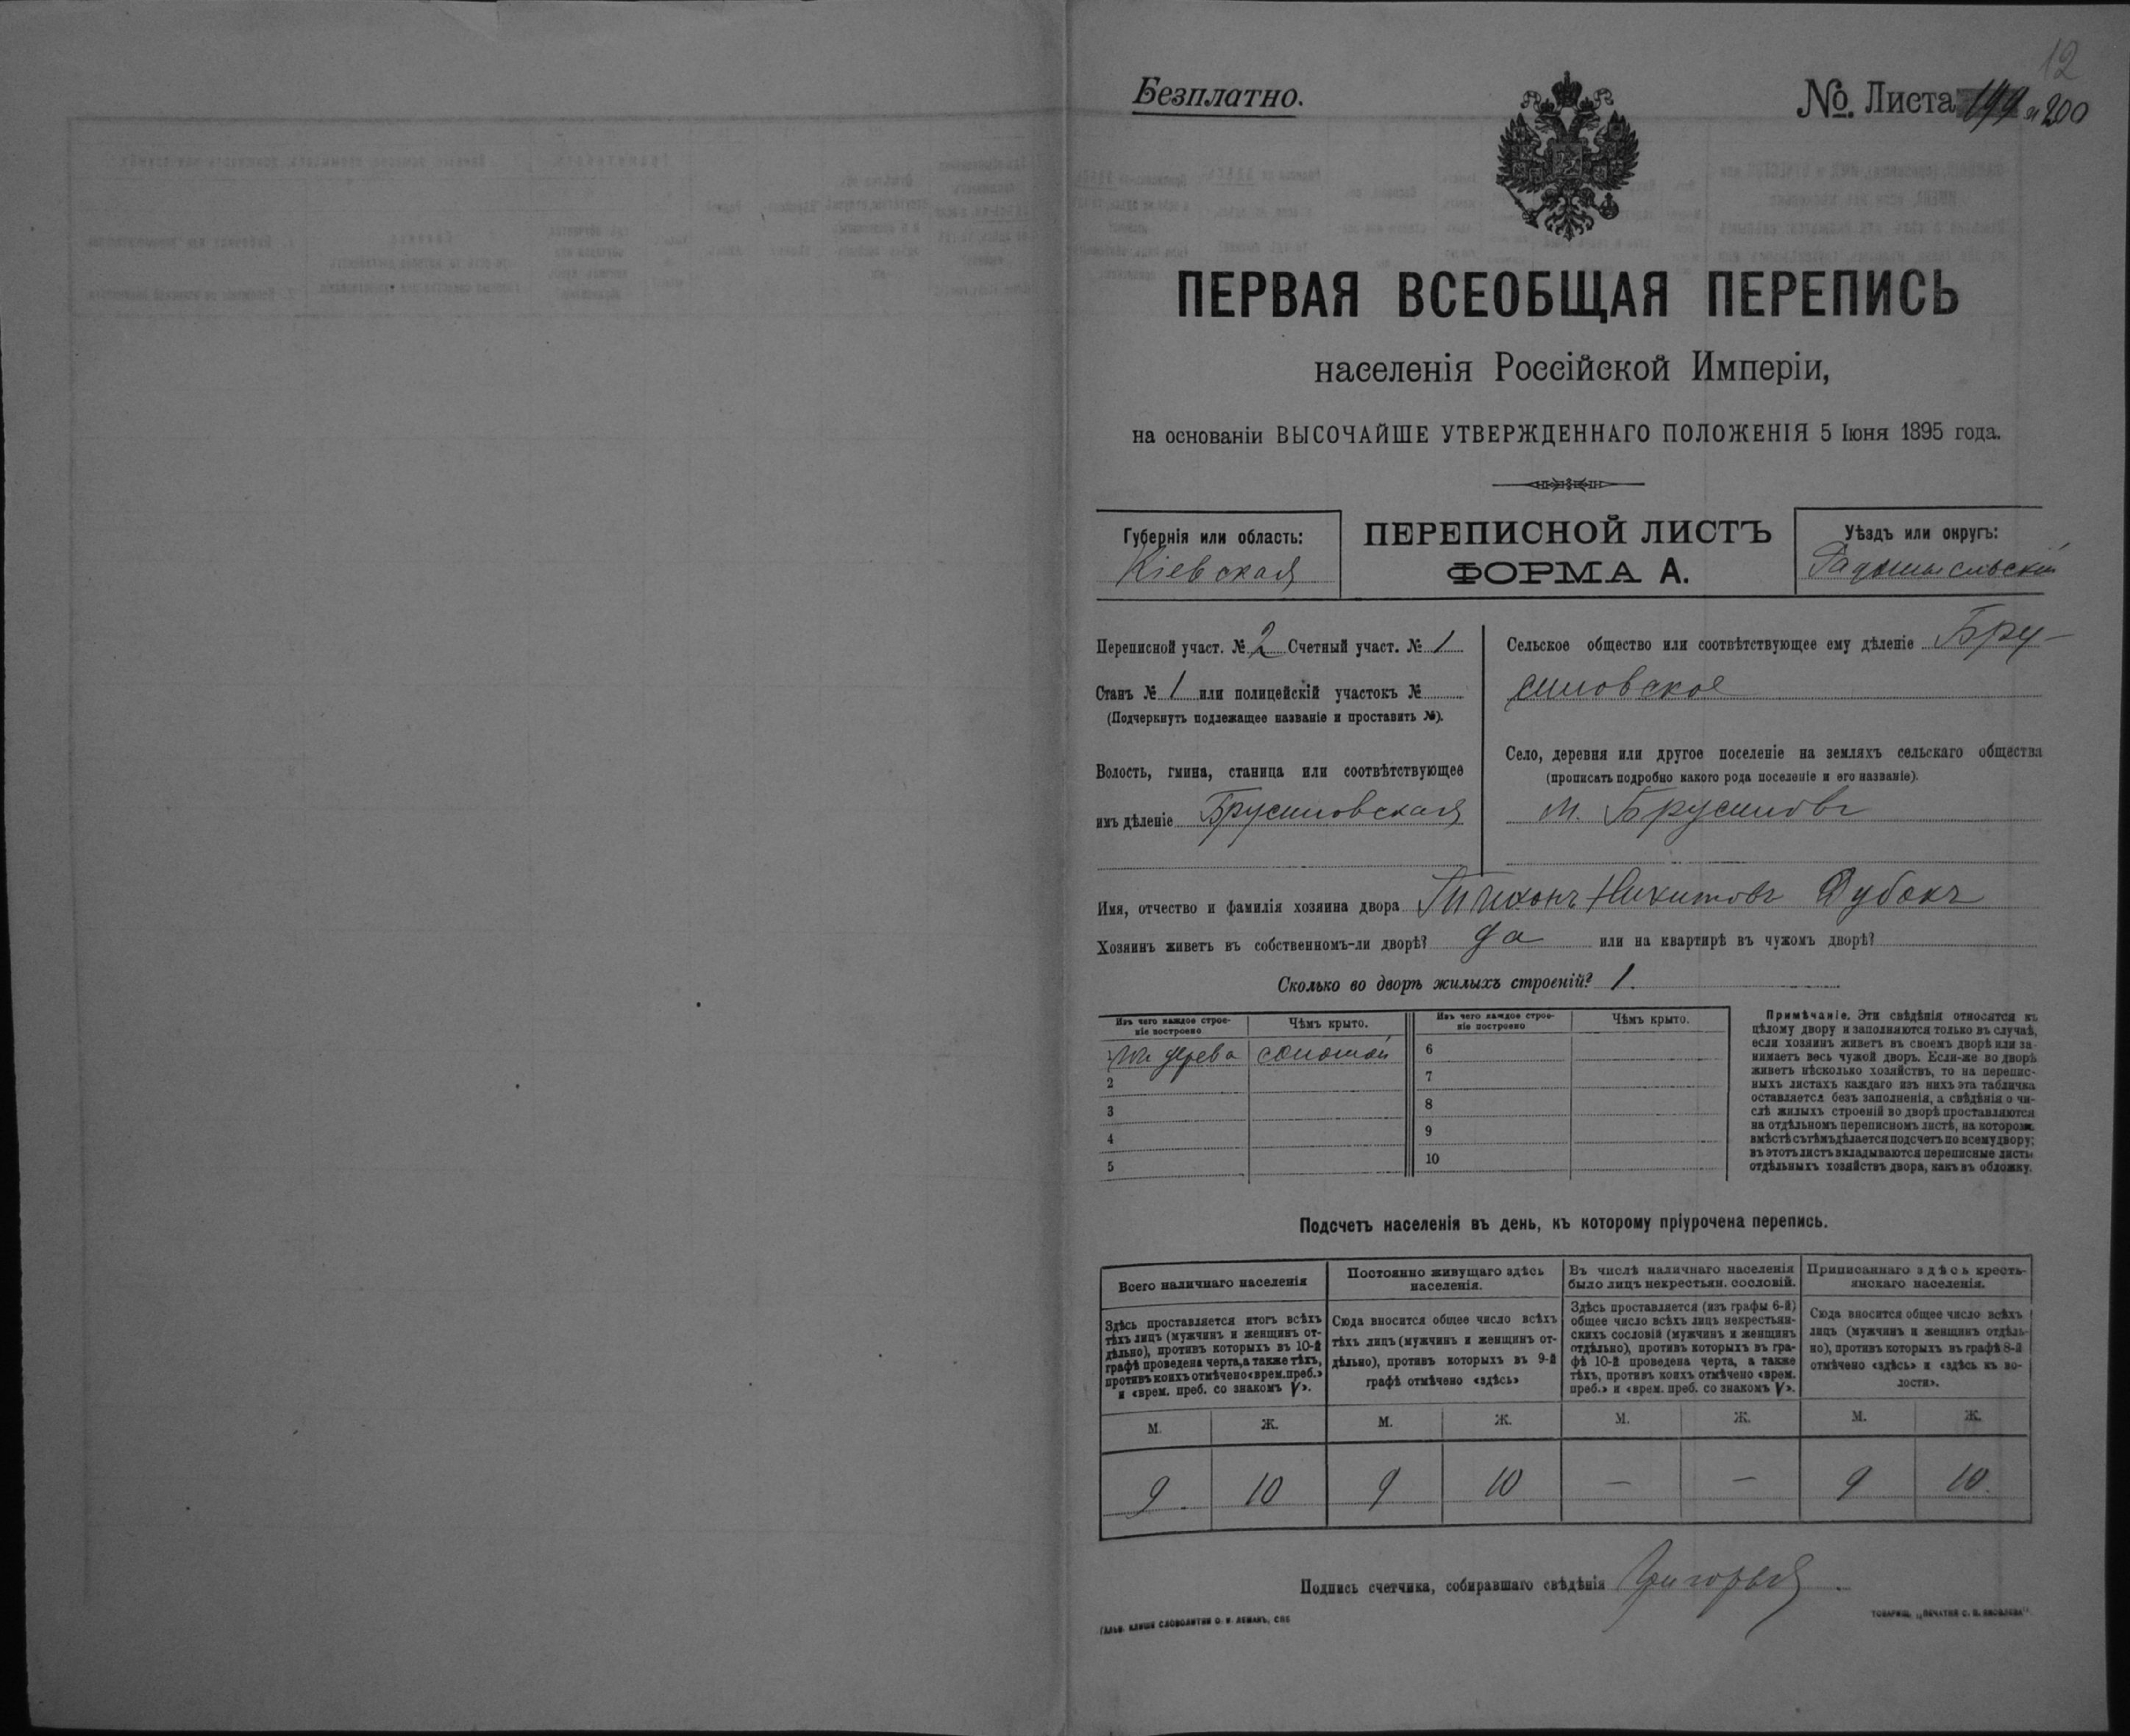 12
Безплатно.
№. Листа 199 и 200
ПЕРВАЯ ВСЕОБЩАЯ ПЕРЕПИСЬ
населенія Россійской Имперіи,
на основаніи ВЫСОЧАЙШЕ УТВЕРЖДЕННАГО ПОЛОЖЕНІЯ 5 Іюня 1895 года.
Губернія или область:
Кіевская
ПЕРЕПИСНОЙ ЛИСТЪ
ФОРМА А.
Уѣздъ или округъ:
Радомысльскій
Переписной участ. № 2 Счетный участ. № 1
Станъ № 1 или полицейскій участокъ №
(Подчеркнуть подлежащее названіе и проставить №).
Волость, гмина, станица или соотвѣтствующее
имъ дѣленіе Брусиловская
Сельское общество или соотвѣтствующее ему дѣленіе Бру-
силовское
Село, деревня или другое поселеніе на земляхъ сельскаго общества
(прописать подробно какого рода поселеніе и его названіе).
м. Брусиловъ
Имя, отчество и фамилія хозяина двора Тихонъ Никитовъ Дубокъ
Хозяинъ живетъ въ собственномъ-ли дворѣ? да или на квартирѣ въ чужомъ дворѣ?
Сколько во дворѣ жилыхъ строеній? 1.
Изъ чего каждое строе-
ніе построено
Чѣмъ крыто.
Изъ чего каждое строе-
ніе построено
Чѣмъ крыто.
1 Изъ дерева соломой
2
3
4
5
6
7
8
9
10
Примѣчаніе. Эти свѣдѣнія относятся къ
цѣлому двору и заполняются только въ случаѣ,
если хозяинъ живетъ въ своемъ дворѣ или за-
нимаетъ весь чужой дворъ. Если-же во дворѣ
живетъ нѣсколько хозяйствъ, то на перепис-
ныхъ листахъ каждаго изъ нихъ эта табличка
оставляется безъ заполненія, а свѣдѣнія о чи-
слѣ жилыхъ строеній во дворѣ проставляются
на отдѣльномъ переписномъ листѣ, на которомъ
вмѣстѣ съ тѣмъ дѣлается подсчетъ по всему двору;
въ этотъ листъ вкладываются переписные листы
отдѣльныхъ хозяйствъ двора, какъ въ обложку.
Подсчетъ населенія въ день, къ которому пріурочена перепись.
Всего наличнаго населенія
Здѣсь проставляется итогъ всѣхъ
тѣхъ лицъ (мужчинъ и женщинъ от-
дѣльно), противъ которыхъ въ 10-й
графѣ проведена черта, а также тѣхъ,
противъ коихъ отмѣчено «врем. преб.»
и «врем. преб. со знакомъ V».
Постоянно живущаго здѣсь
населенія.
Сюда вносится общее число всѣхъ
тѣхъ лицъ (мужчинъ и женщинъ от-
дѣльно), противъ которыхъ въ 9-й
графѣ отмѣчено «здѣсь»
Въ числѣ наличнаго населенія
было лицъ некрестьян. сословій.
Здѣсь проставляется (изъ графы 6-й)
общее число всѣхъ лицъ некрестьян-
скихъ сословій (мужчинъ и женщинъ
отдѣльно), противъ которыхъ въ гра-
фѣ 10-й проведена черта, а также
тѣхъ, противъ коихъ отмѣчено «врем.
преб.» и «врем. преб. со знакомъ V».
Приписаннаго здѣсь кресть-
янскаго населенія.
Сюда вносится общее число всѣхъ
лицъ (мужчинъ и женщинъ отдѣль-
но), противъ которыхъ въ графѣ 8-й
отмѣчено «здѣсь» и «здѣсь къ во-
лости».
М. Ж. М. Ж. М. Ж. М. Ж.
9 10 9 10 — — 9 10
Подпись счетчика, собиравшаго свѣдѣнія
ГАЛЬВ. КЛИШЕ СЛОВОЛИТНИ О. И. ЛЕМАНЪ, СПБ
ТОВАРИЩ. „ПЕЧАТНЯ С. П. ЯКОВЛЕВА"